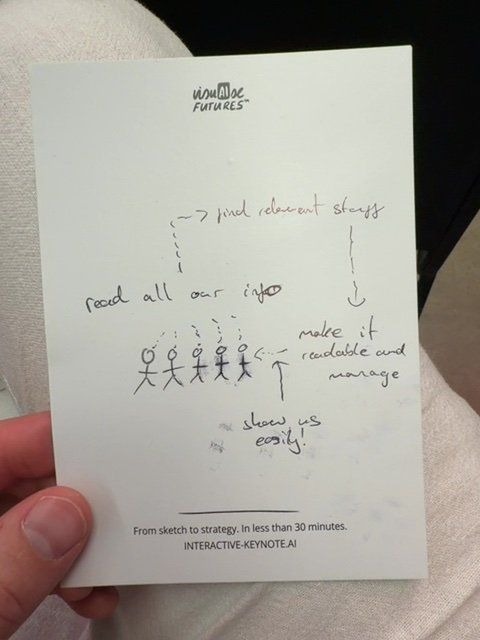 visuAIse
FUTURES™
-> find relevant stuff
read all our info
make it
readable and
manage
show us
easily!
From sketch to strategy. In less than 30 minutes.
INTERACTIVE-KEYNOTE.AI